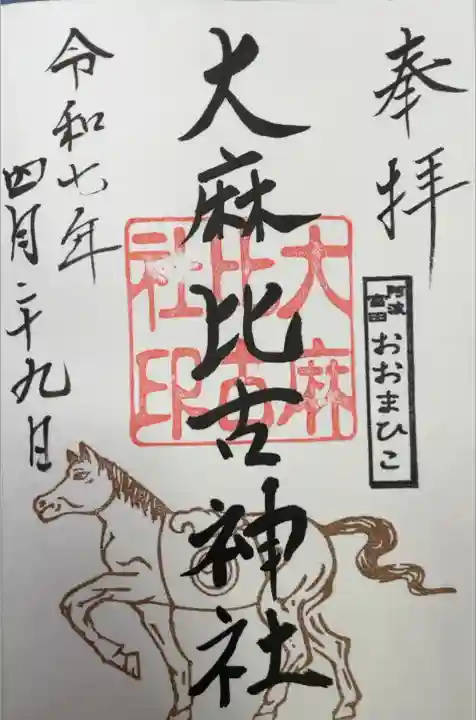 奉拝
阿波
富田
おおまひこ
大麻比古神社
大麻
比古
社印
令和七年
四月二十九日